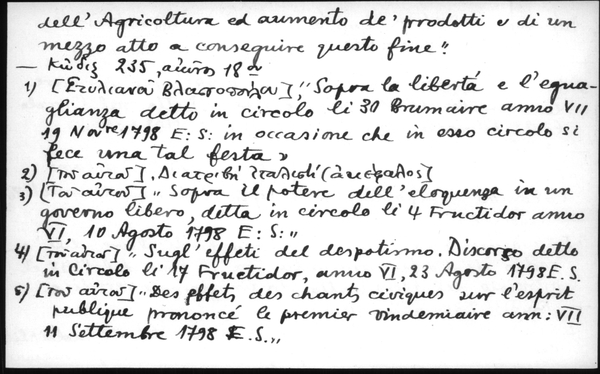 dell'Agricoltura ed aumento de' prodotti e di un
mezzo atto a conseguire questo fine".
— Κῶδιξ 235, αἰῶνος 18ου
1) [Στυλιανοῦ Βλασσοπούλου], "Sopra la libertá e l'egua-
glianza detto in circolo li 30 Brumaire anno VII
19 Novre 1798 E: S: in occasione che in esso circolo si
fece una tal festa»
2) [τοῦ αὐτοῦ], Διατριβὴ ἰταλιστί (ἀκέφαλος]
3) [Τοῦ αὐτοῦ] "Sopra il potere dell'eloquenza in un
governo libero, detta in circolo li 4 Fructidor anno
VI, 10 Agosto 1798 E: S:"
4) [τοῦ αὐτοῦ] "Sugl'effeti del despotismo. Discorso detto
in Circolo li 14 Fructidor, anno VI, 23 Agosto 1798 E. S.
5) [τοῦ αὐτοῦ] "Des effets des chants civiques sur l'esprit
publique prononcé le premier vindemiaire ann: VII
11 Settembre 1798 E. S.„